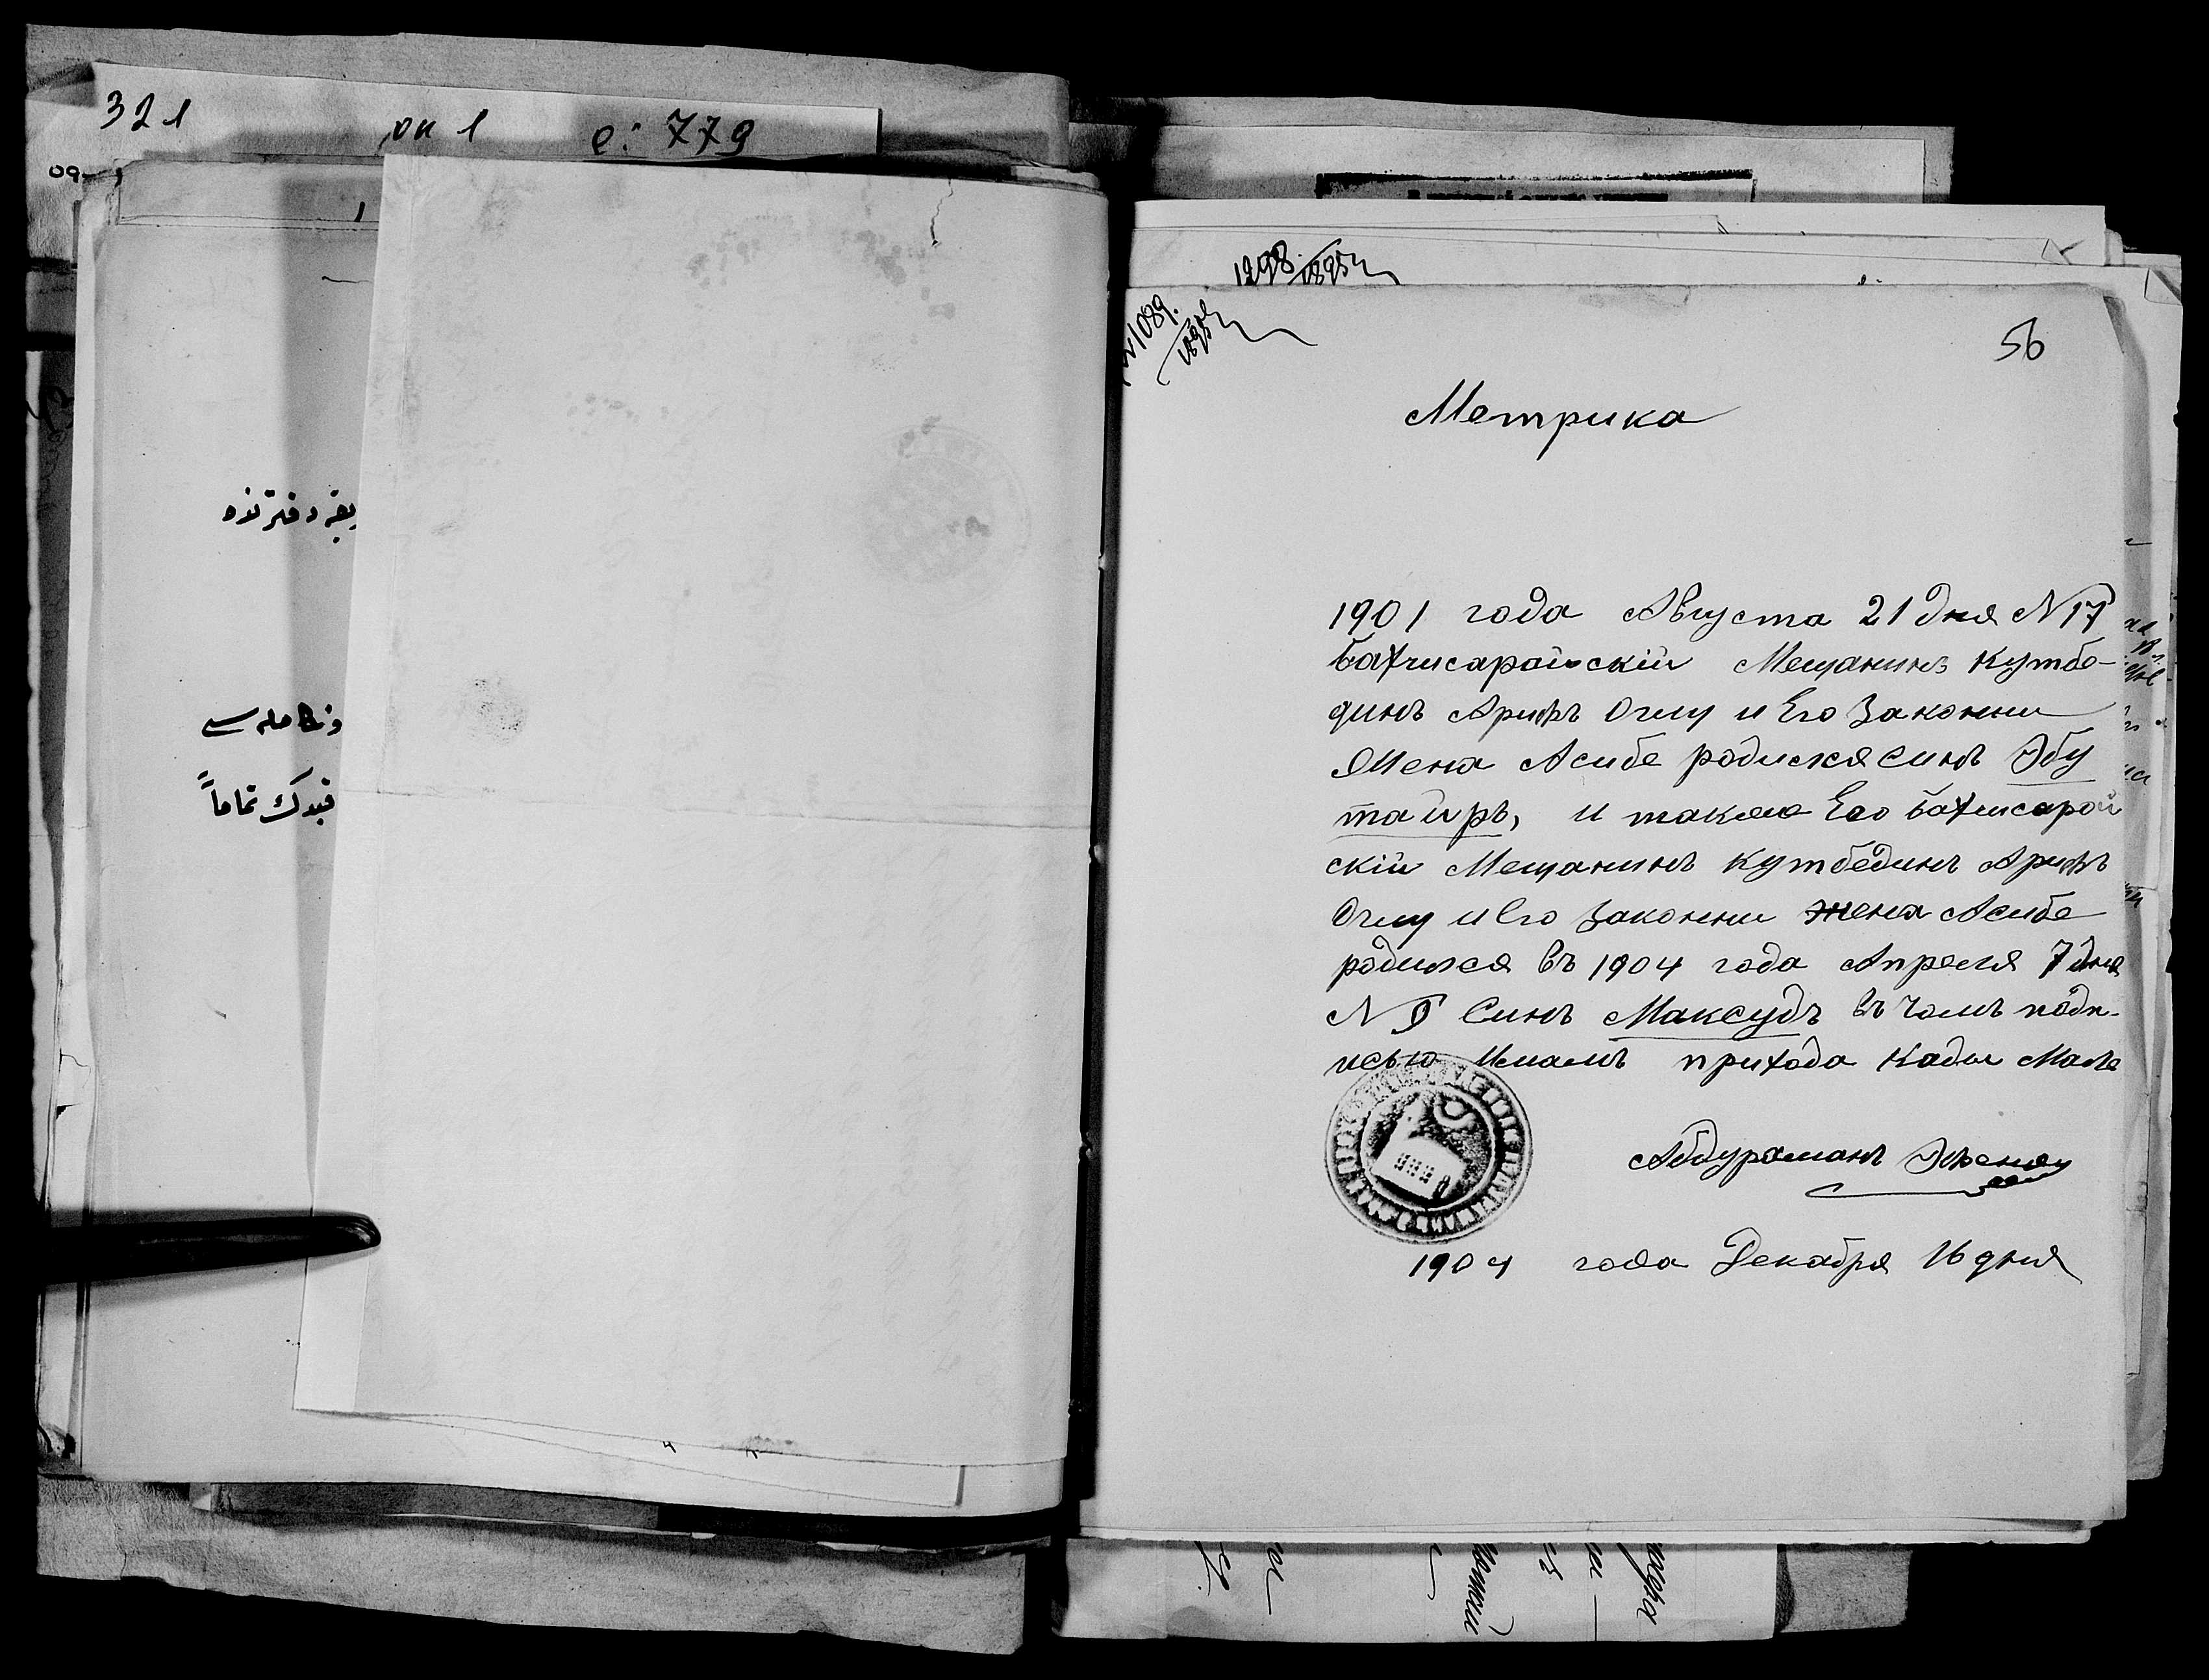 321 оп 1 е: 779
دفترنده
قيدك تماماً
1298. 1895
№1089.
56
Метрика
1901 года Августа 21 дня N 17
Бахчисарайскій Мещанинъ Кутбе-
динъ Арифъ Оглу и Его Законни
Жена Асибе родился синъ Эбу
таиръ, и также Его Бахчисарай
скій Мещанинъ Кутбединъ Арифъ
Оглу и Его Законни жена Асибе
родился въ 1904 года Апреля 7 дня
N Синъ Максудъ въ чомъ подп-
исью Имамъ прихода Кады Мале
Абдураманъ
1904 года Декабря 16 дня